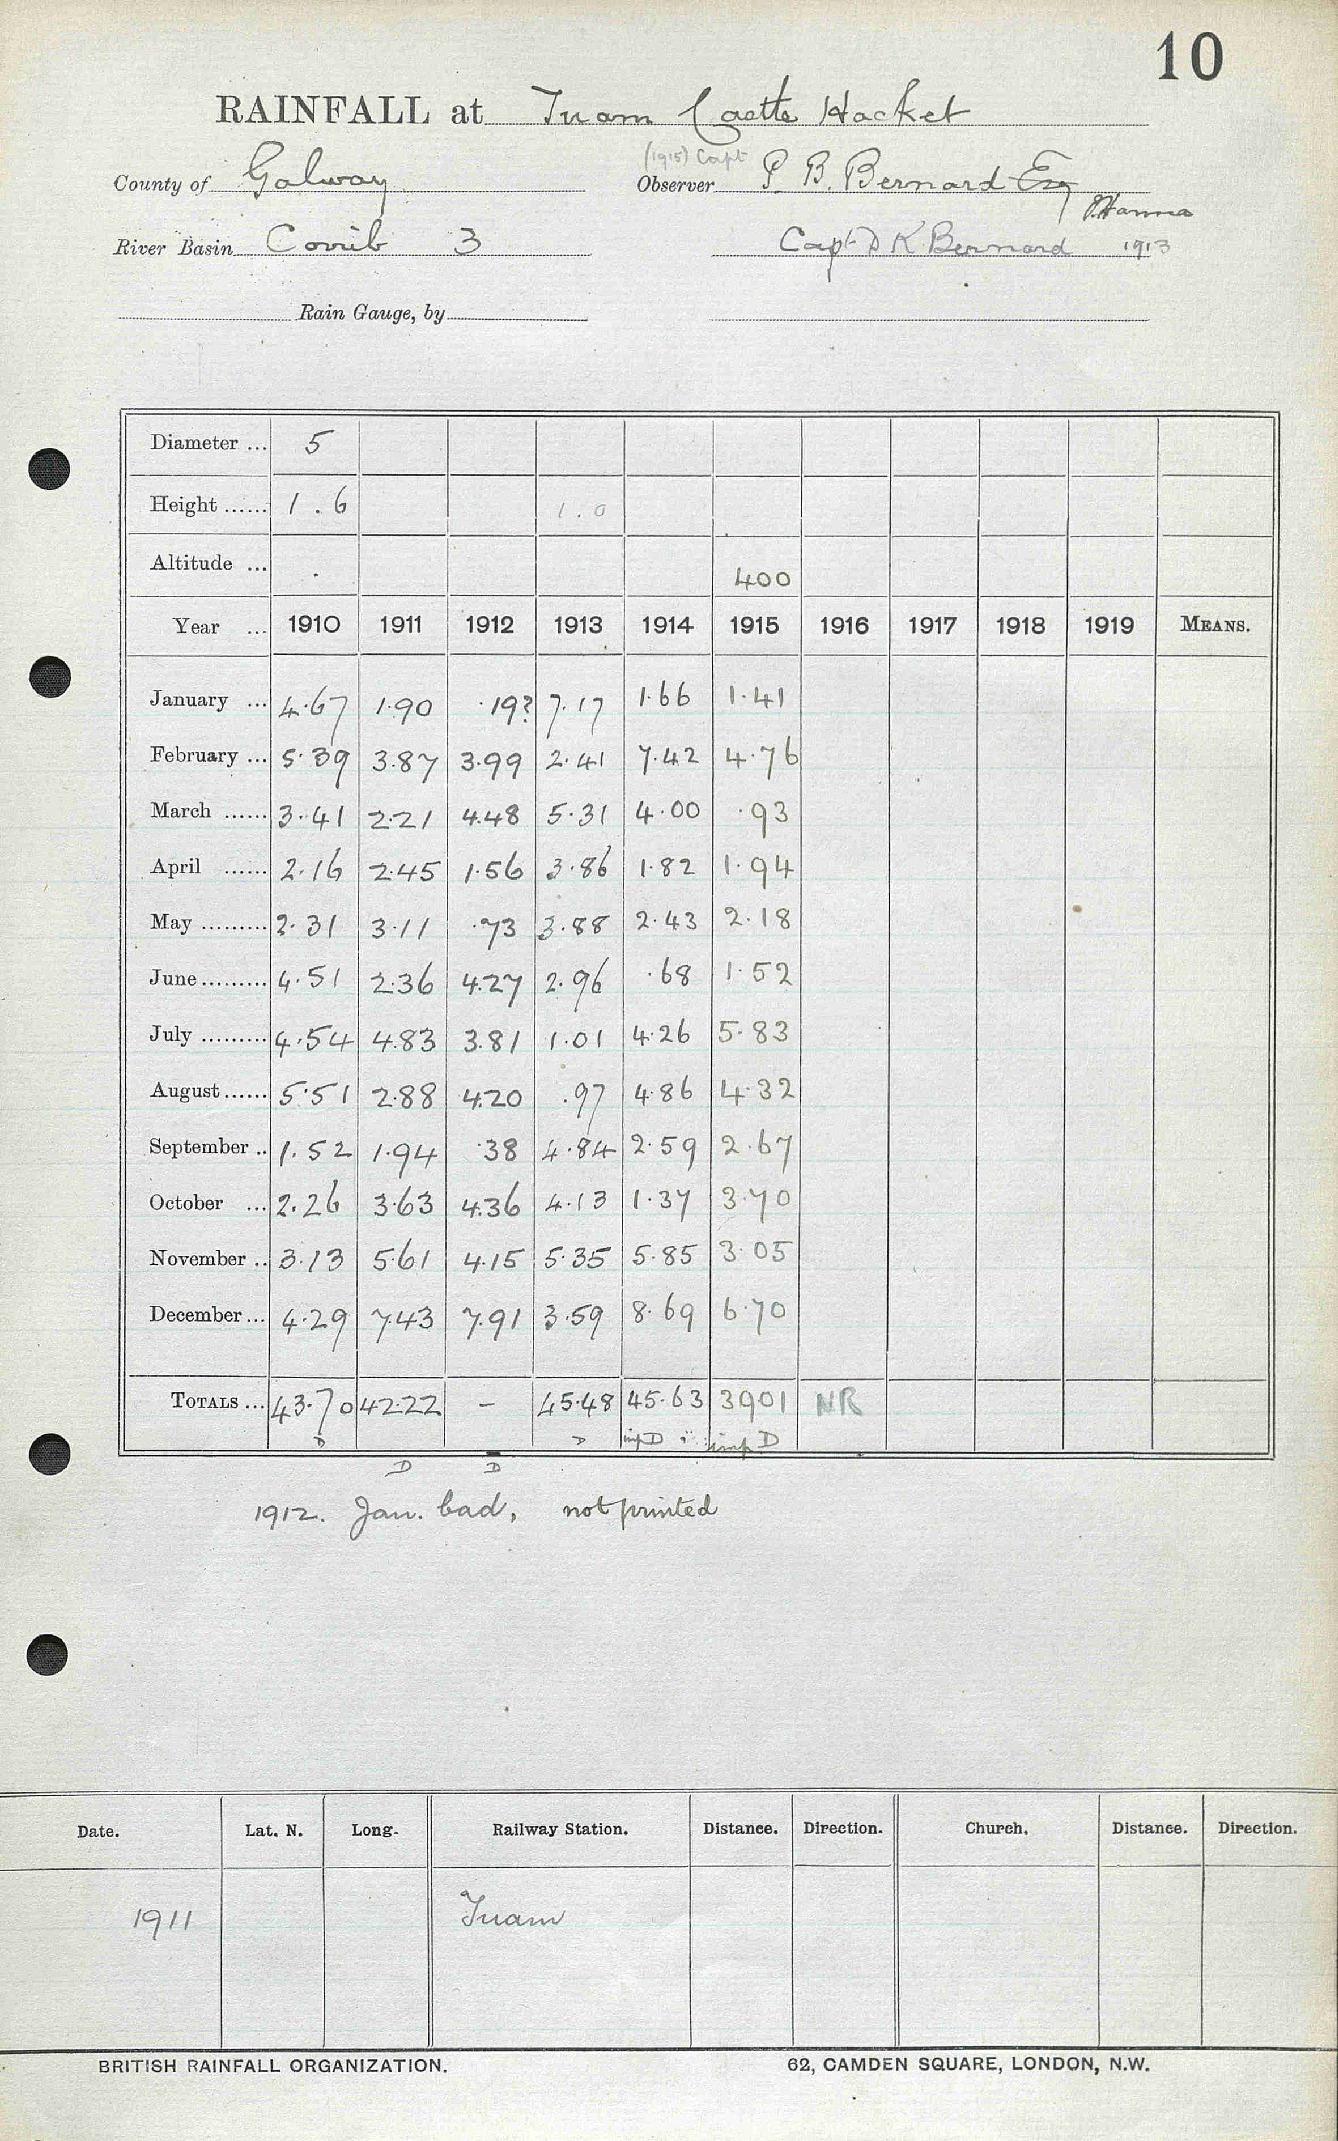 10
RAINFALL at Tuam Castle Hacket
(1915) Capt
County of Galway Observer P. B. Bernard Esq
River Basin Corrib 3 Capt D K Bernard 1913
Rain Gauge, by
Diameter ... 5
Height ...... 1.6 1.0
Altitude ... 400
Year ... 1910 1911 1912 1913 1914 1915 1916 1917 1918 1919 MEANS.
January ... 4.67 1.90 .19? 7.17 1.66 1.41
February ... 5.39 3.87 3.99 2.41 7.42 4.76
March ...... 3.41 2.21 4.48 5.31 4.00 .93
April ...... 2.16 2.45 1.56 3.86 1.82 1.94
May ......... 2.31 3.11 .73 3.88 2.43 2.18
June ......... 4.51 2.36 4.27 2.96 .68 1.52
July ......... 4.54 4.83 3.81 1.01 4.26 5.83
August ...... 5.51 2.88 4.20 .97 4.86 4.32
September .. 1.52 1.94 .38 4.84 2.59 2.67
October ... 2.26 3.63 4.36 4.13 1.37 3.70
November .. 3.13 5.61 4.15 5.35 5.85 3.05
December ... 4.29 7.43 7.91 3.59 8.69 6.70
TOTALS ... 43.70 42.22 - 45.48 45.63 3901 NR
D D imp D imp D
D D
1912. Jan. bad, not printed
Date. Lat. N. Long. Railway Station. Distance. Direction. Church. Distance. Direction.
1911 Tuam
BRITISH RAINFALL ORGANIZATION. 62, CAMDEN SQUARE, LONDON, N.W.